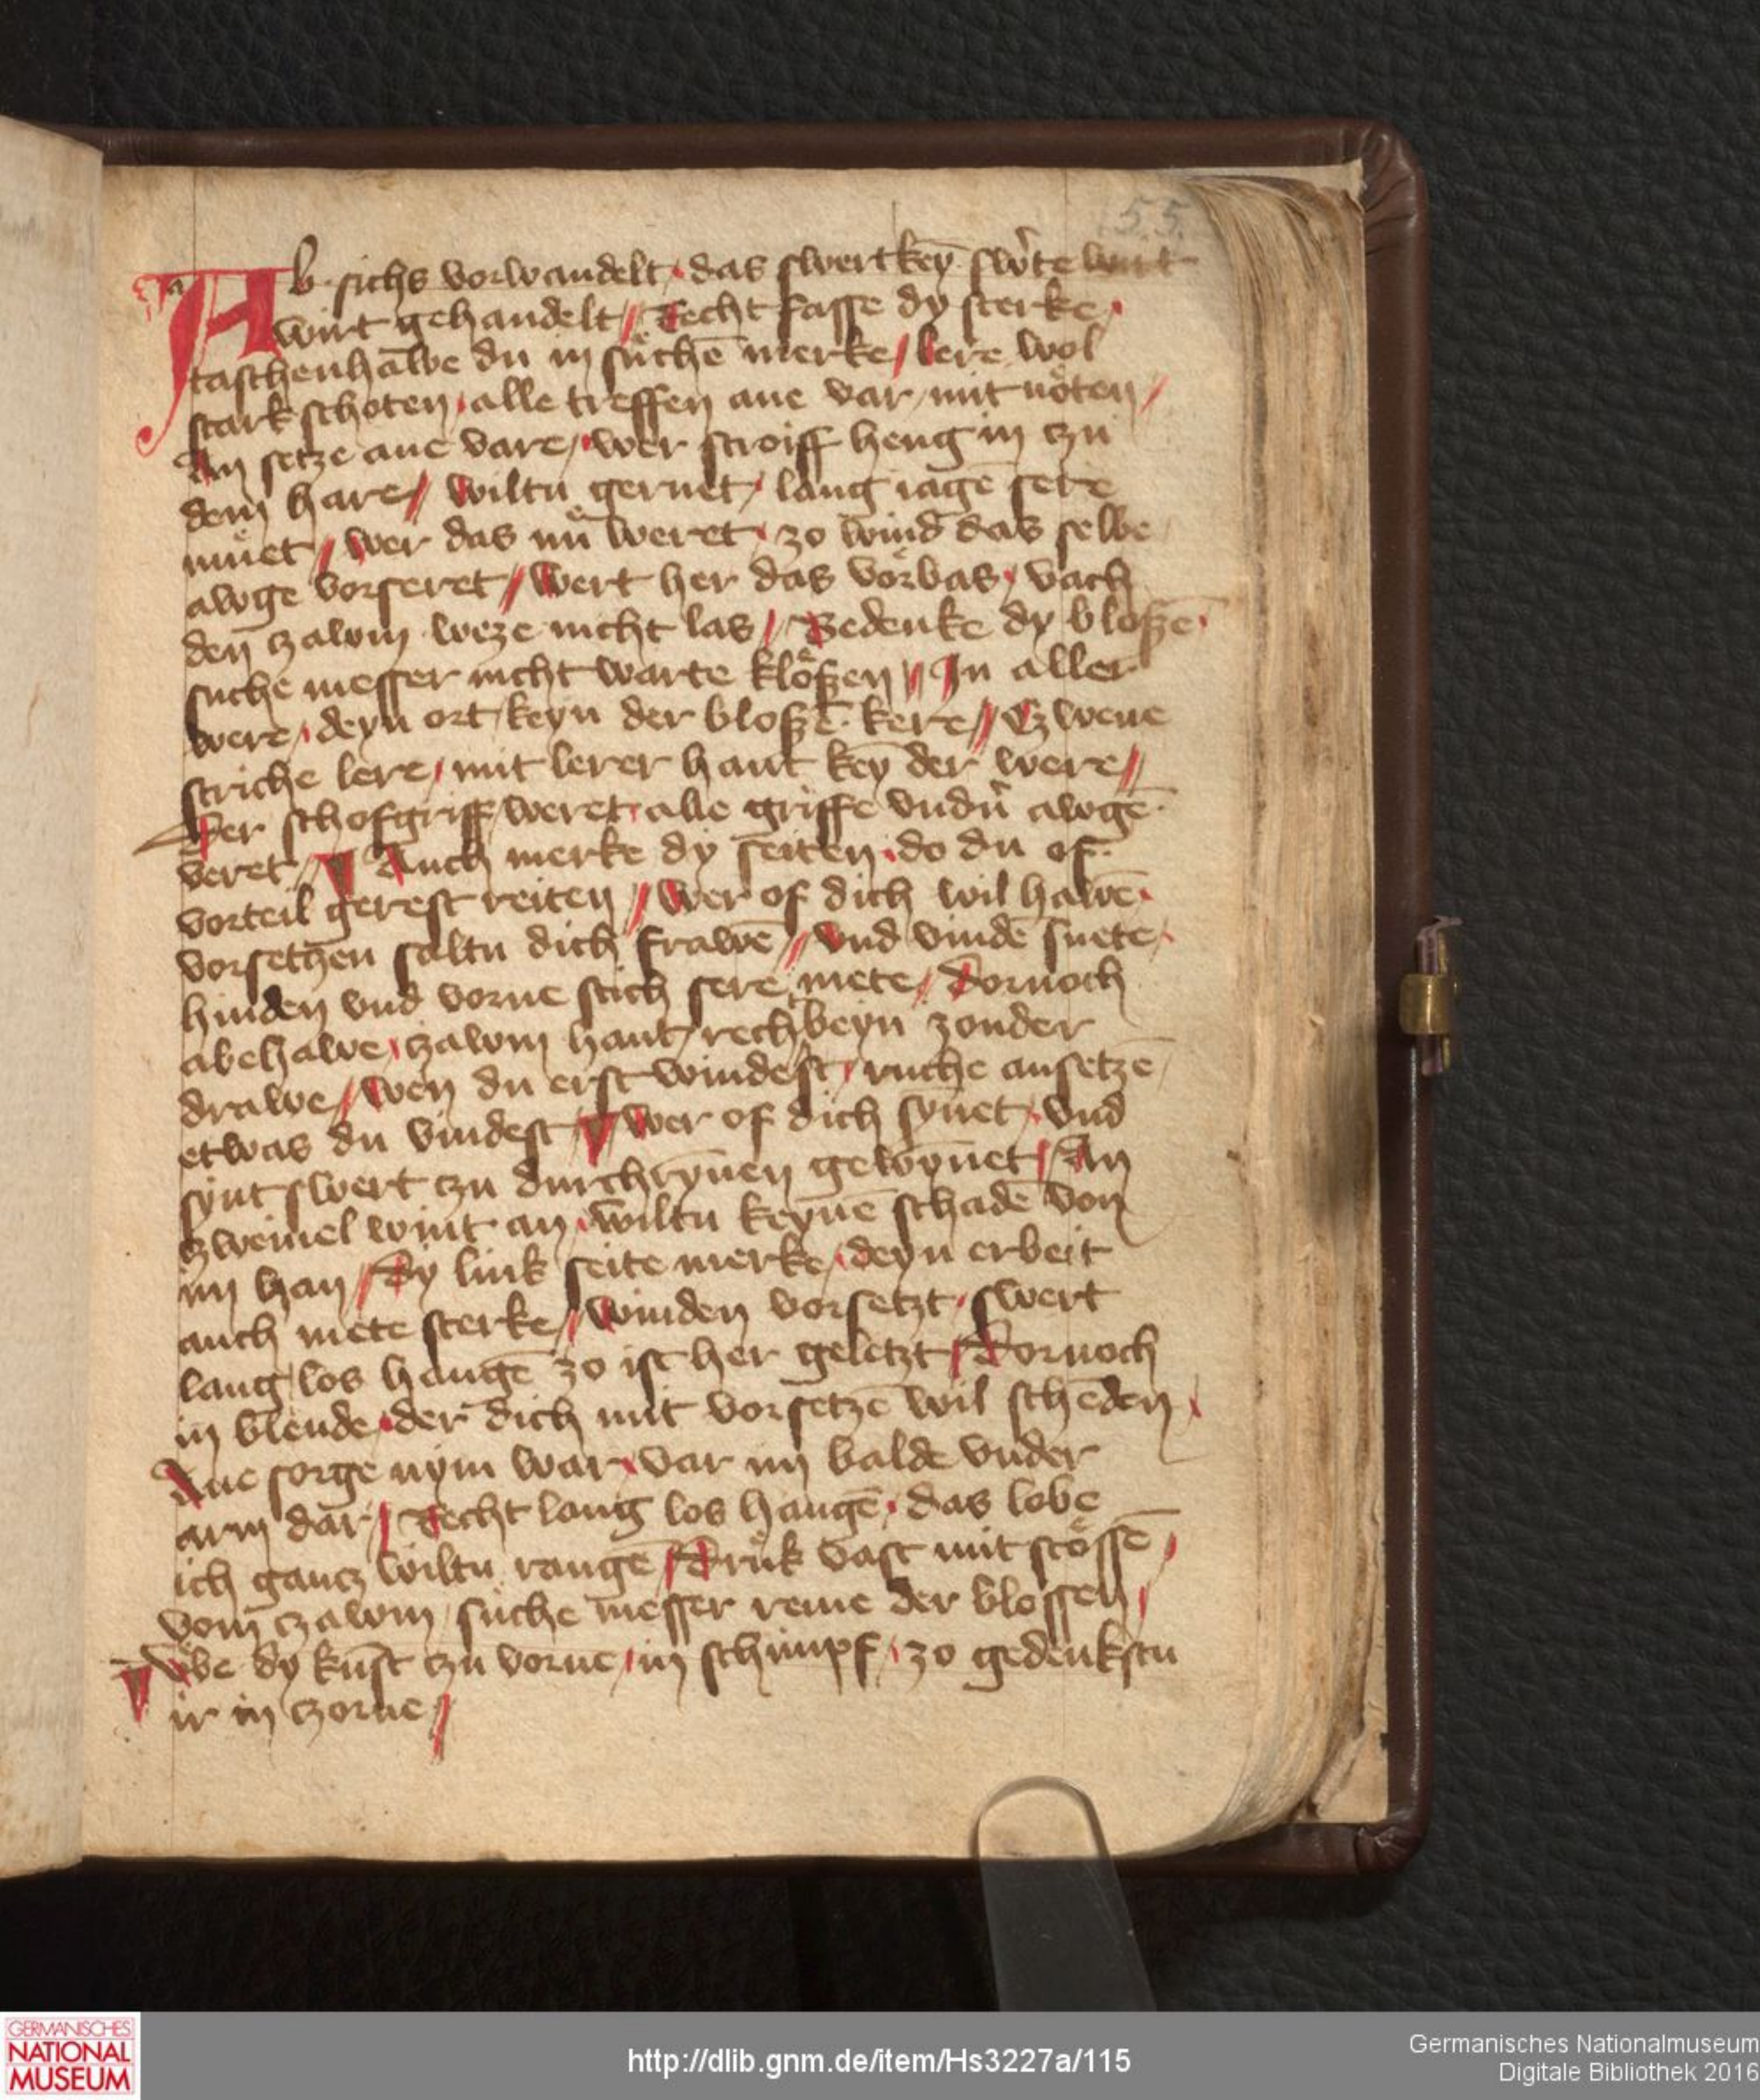 55
Ab sichs vorwandelt · das swert keȳ sw'te wirt
wirt gehandelt // Recht fasse dy sterke /
taschenhāwe du in sůchē merke / lere wol
stark schoten / alle treffen ane var / mit nöten /
An setze ane vare / wer stroiff heng in czu
dem hare // wiltu geruet / lang iagē sere
muͤet / wer das nuͤ weret / zo wind das selbe
awge vorseret // wert her das voͤrbas / vach
den czawm weze nicht las / Bedenke dy bloßē /
suche messer nicht warte kloͤßen // In aller
were / deyn ort / keyn der bloßē kere // Czwene
striche lere / mit lerer hant keȳ der were //
Der schofgriff / weret / alle griffe vndn' awgē
veret // Auch merke dy seiten / do du of
vorteil gerest reiten // wer of dich wil hawē /
vorsetzen saltu dich frawē // vnd vindē suete /
hinden vnd vorne stich sere mete / Dornoch
abehawe / czawm hant / rech beyn zonder
drawe // wen du erst windest / ruche ansetzē
etwas du vindest // wer of dich synet / vnd
synt swert czu durchrȳnen gewȳnet / An
czweiuel wint an / wiltu keynē schadē von
im han / Dy link seite merke / deyn erbeit
auch mete sterke // winden vorsetzt / swert
lang / los hangē zo ist her geletzt / Dornoch
in blende / der dich mit vorsetzē wil schēden /
Ane sorge nym war / var im balde vnder
arm dar / Recht lang los hangē / das lobe
ich gancz wiltu rangē / Drůk vast mit stoͤssē /
vom czawm / suche messer reme der blossen /
Vbe dy kunst czu vorne / in schimpf / zo gedenkstu
ir in czorne /
GERMANISCHES
NATIONAL
MUSEUM
http://dlib.gnm.de/item/Hs3227a/115
Germanisches Nationalmuseum
Digitale Bibliothek 2016